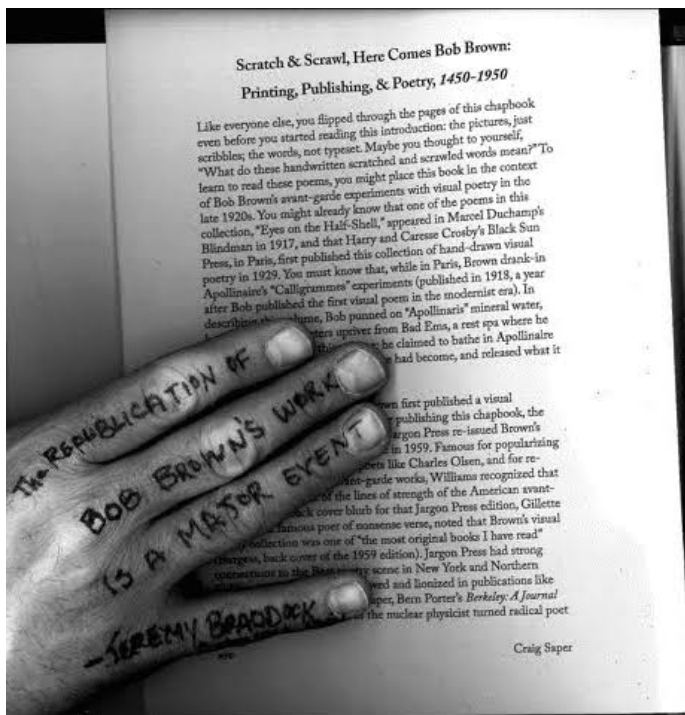 Scratch & Scrawl, Here Comes Bob Brown:
Printing, Publishing, & Poetry, 1450-1950
Like everyone else, you flipped through the pages of this chapbook
even before you started reading this introduction: the pictures, just
scribbles; the words, not typeset. Maybe you thought to yourself,
“What do these handwritten scratched and scrawled words mean?” To
learn to read these poems, you might place this book in the context
of Bob Brown's avant-garde experiments with visual poetry in the
late 1920s. You might already know that one of the poems in this
collection, “Eyes on the Half-Shell,” appeared in Marcel Duchamp's
Blindman in 1917, and that Harry and Caresse Crosby's Black Sun
Press, in Paris, first published this collection of hand-drawn visual
poetry in 1929. You must know that, while in Paris, Brown drank-in
Apollinaire's “Calligrammes” experiments (published in 1918, a year
after Bob published the first visual poem in the modernist era). In
describing this volume, Bob punned on “Apollinaris” mineral water,
upriver from Bad Ems, a rest spa where he
he claimed to bathe in Apollinaire
had become, and released what it
first published a visual
publishing this chapbook, the
Jargon Press re-issued Brown's
in 1959. Famous for popularizing
poets like Charles Olsen, and for re-
works, Williams recognized that
of the lines of strength of the American avant-
cover blurb for that Jargon Press edition, Gillette
famous poet of nonsense verse, noted that Brown's visual
collection was one of “the most original books I have read”
back cover of the 1959 edition). Jargon Press had strong
connections to the scene in New York and Northern
and lionized in publications like
Bern Porter's Berkeley: A Journal
the nuclear physicist turned radical poet
Craig Saper
The REPUBLICATION OF
BOB BROWN'S WORK
IS A MAJOR EVENT
—JEREMY BRADDOCK